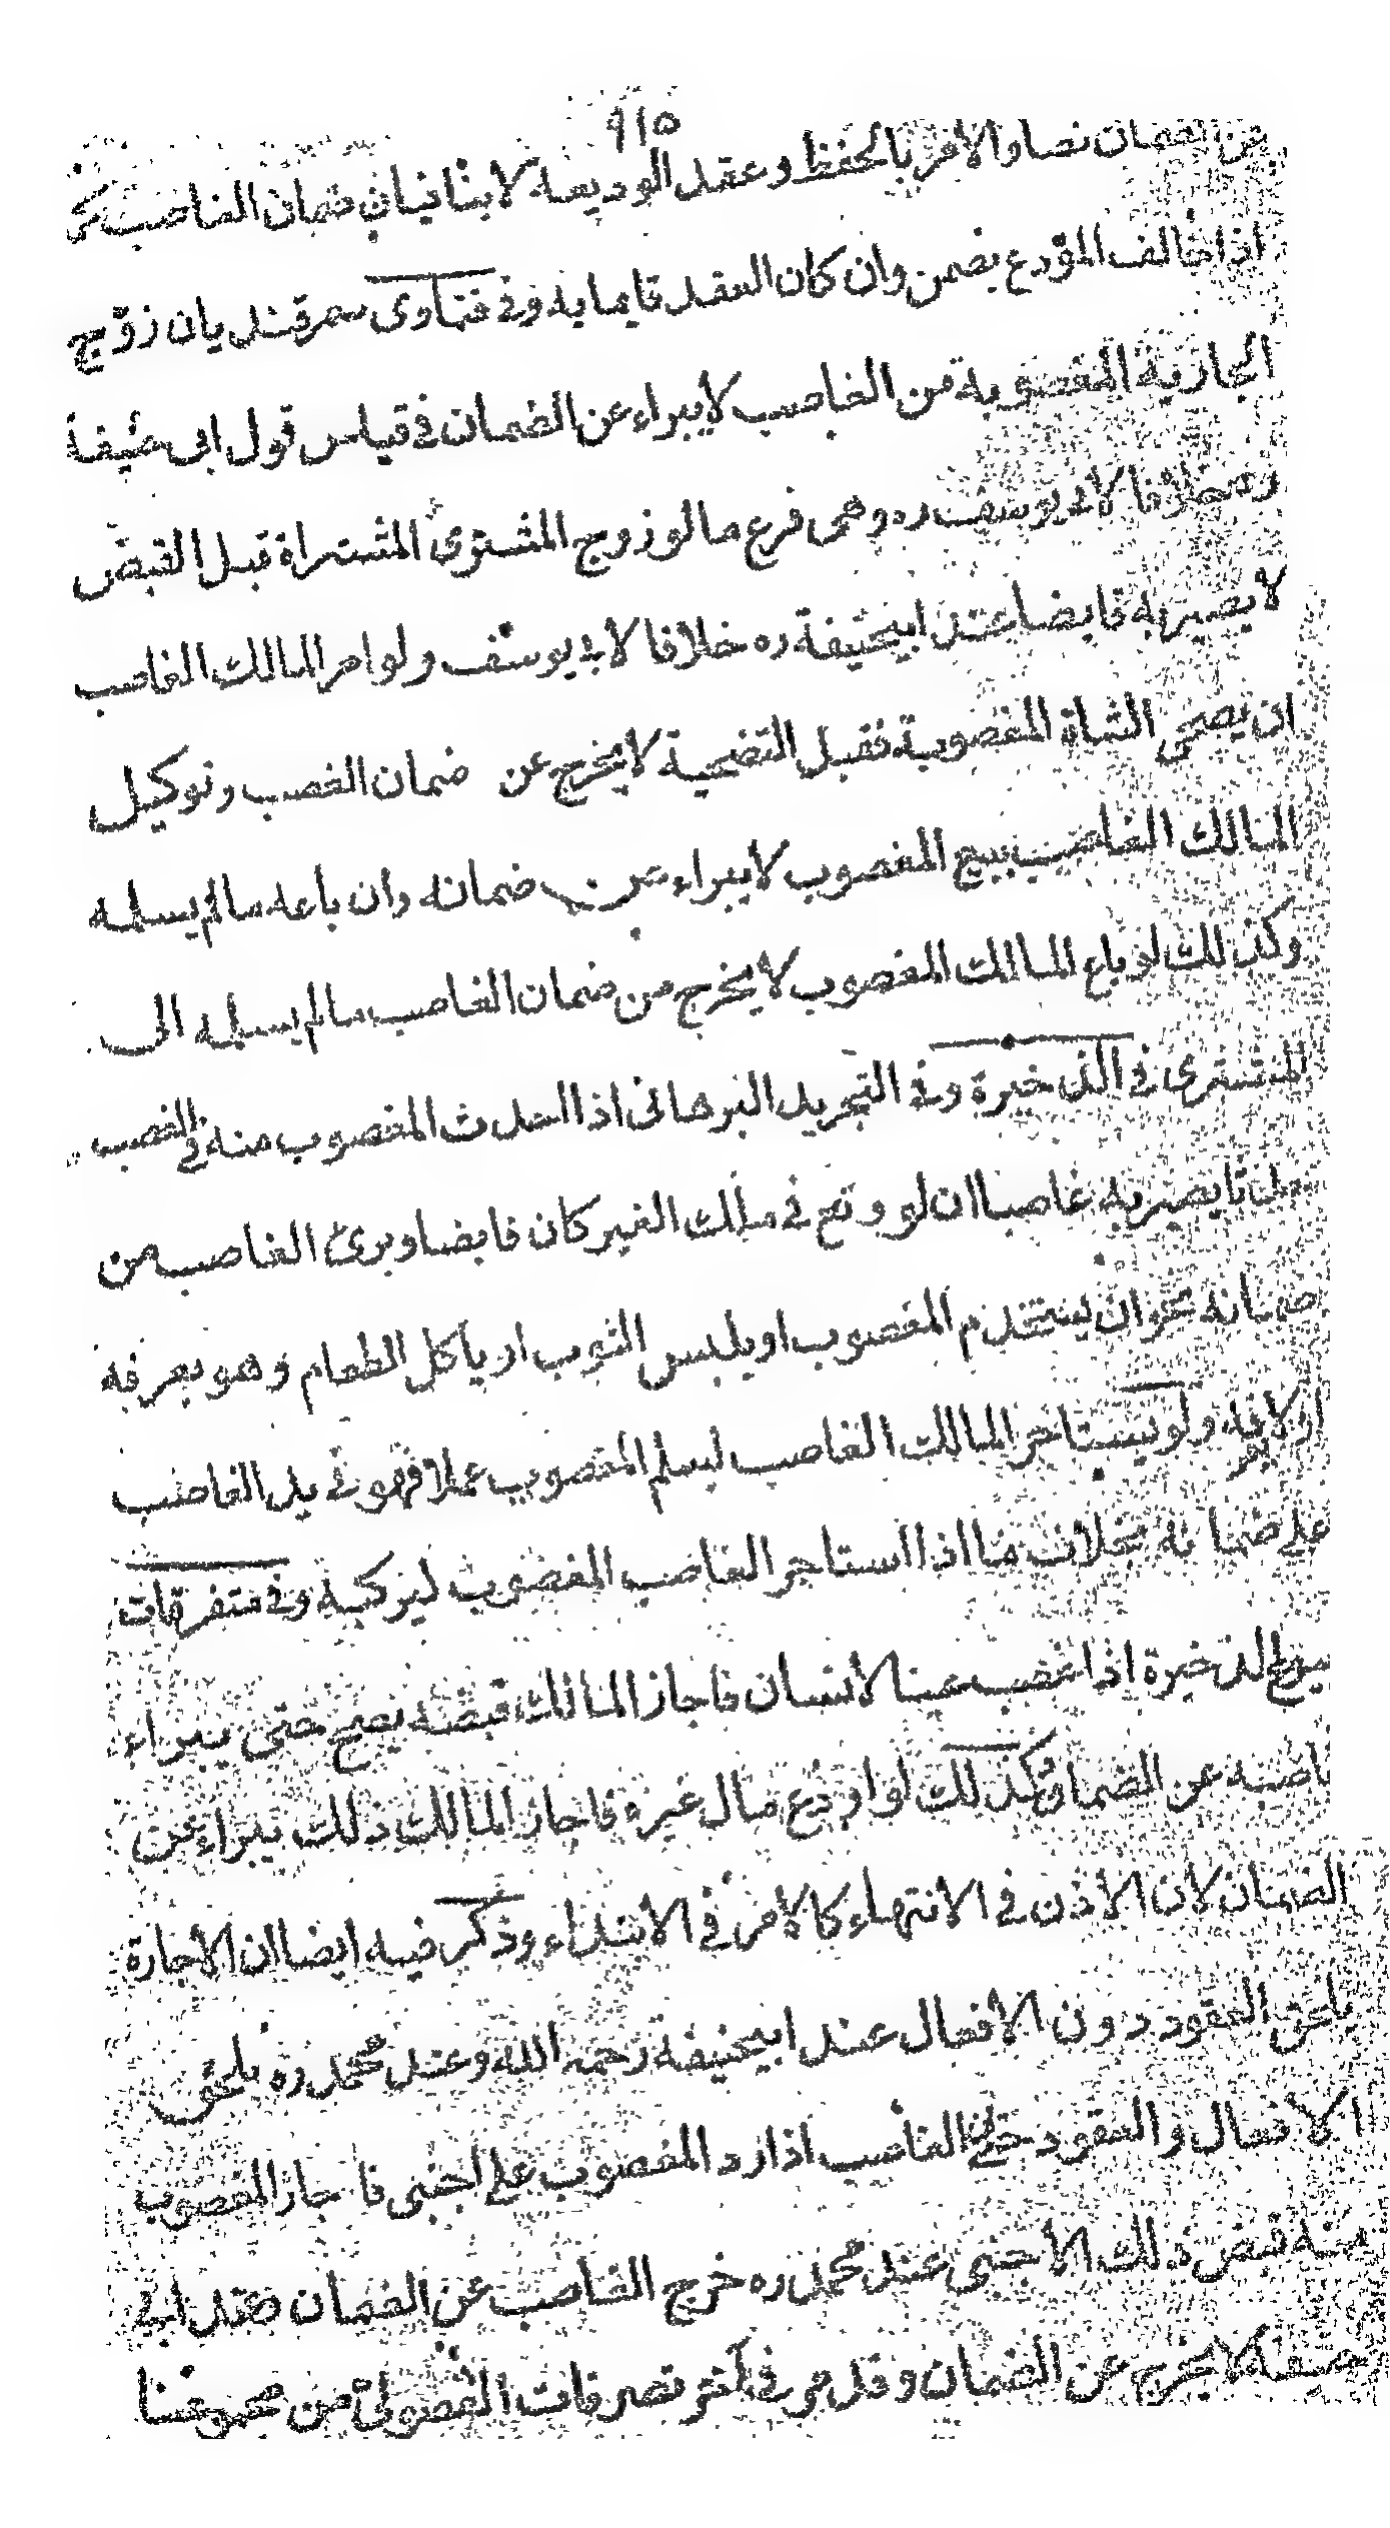 ٩١٥
عن الضمان نصا والامر بالحفظ وعقد الوديعة لا ينافيان ضمان الغاصب كمن
اذا خالف المودع يضمن وان كان العقد قايما به وفى فتاوى سمرقند يان زوج
الجارية المغصوبة من الغاصب لا يبراء عن الضمان فى قياس قول ابى حنيفة
ره خلافا لابى يوسف ره وهى فرع مالو زوج المشترى المشتراة قبل القبض
لا يصير به قابضا عند ابيحنيفة ره خلافا لابى يوسف ولو امر المالك الغاصب
ان يضحى الشاة المغصوبة فقبل التضحية لا يخرج عن ضمان الغصب وتوكيل
المالك الغاصب ببيع المغصوب لا يبراء عن ضمانه وان باعه مالم يسلمه
وكذلك لو باع المالك المغصوب لا يخرج من ضمان الغاصب مالم يسلمه الى
المشترى فى الذخيرة وفى التجريد البرهانى اذا احدث المغصوب منه فى الغصب
حدثا يصير به غاصبا ان لو وقع فى ملك الغير كان قابضا وبرئ الغاصب من
ضمانه نحو ان يستخدم المغصوب او يلبس الثوب او ياكل الطعام وهو يعرفه
او لا يعرفه ولو يستاجر المالك الغاصب ليسلم المغصوب عملا فهو فى يد الغاصب
على ضمانه بخلاف ما اذا استاجر الغاصب المغصوب ليركبه وفى متفرقات
بيوع الذخيرة اذا غصب عينا لانسان فاجاز المالك قبضه يصح حتى يبراء
غاصبه عن الضمان وكذلك لو اودع مال غيره فاجاز المالك ذلك يبراء عن
الضمان لان الاذن فى الانتهاء كالامر فى الابتداء وذكر فيه ايضا ان الاجازة
يلحق العقود دون الافعال عند ابيحنيفة رحمه الله وعند محمد ره يلحق
الافعال والعقود حتى ان الغاصب اذا رد المغصوب على اجنبى فاجاز المغصوب
منه قبض ذلك الاجنبى عند محمد ره خرج الغاصب عن الضمان وعند ابى
حنيفة لا يخرج عن الضمان وقد مر فى اخر تصرفات الفضولى من مجموعنا